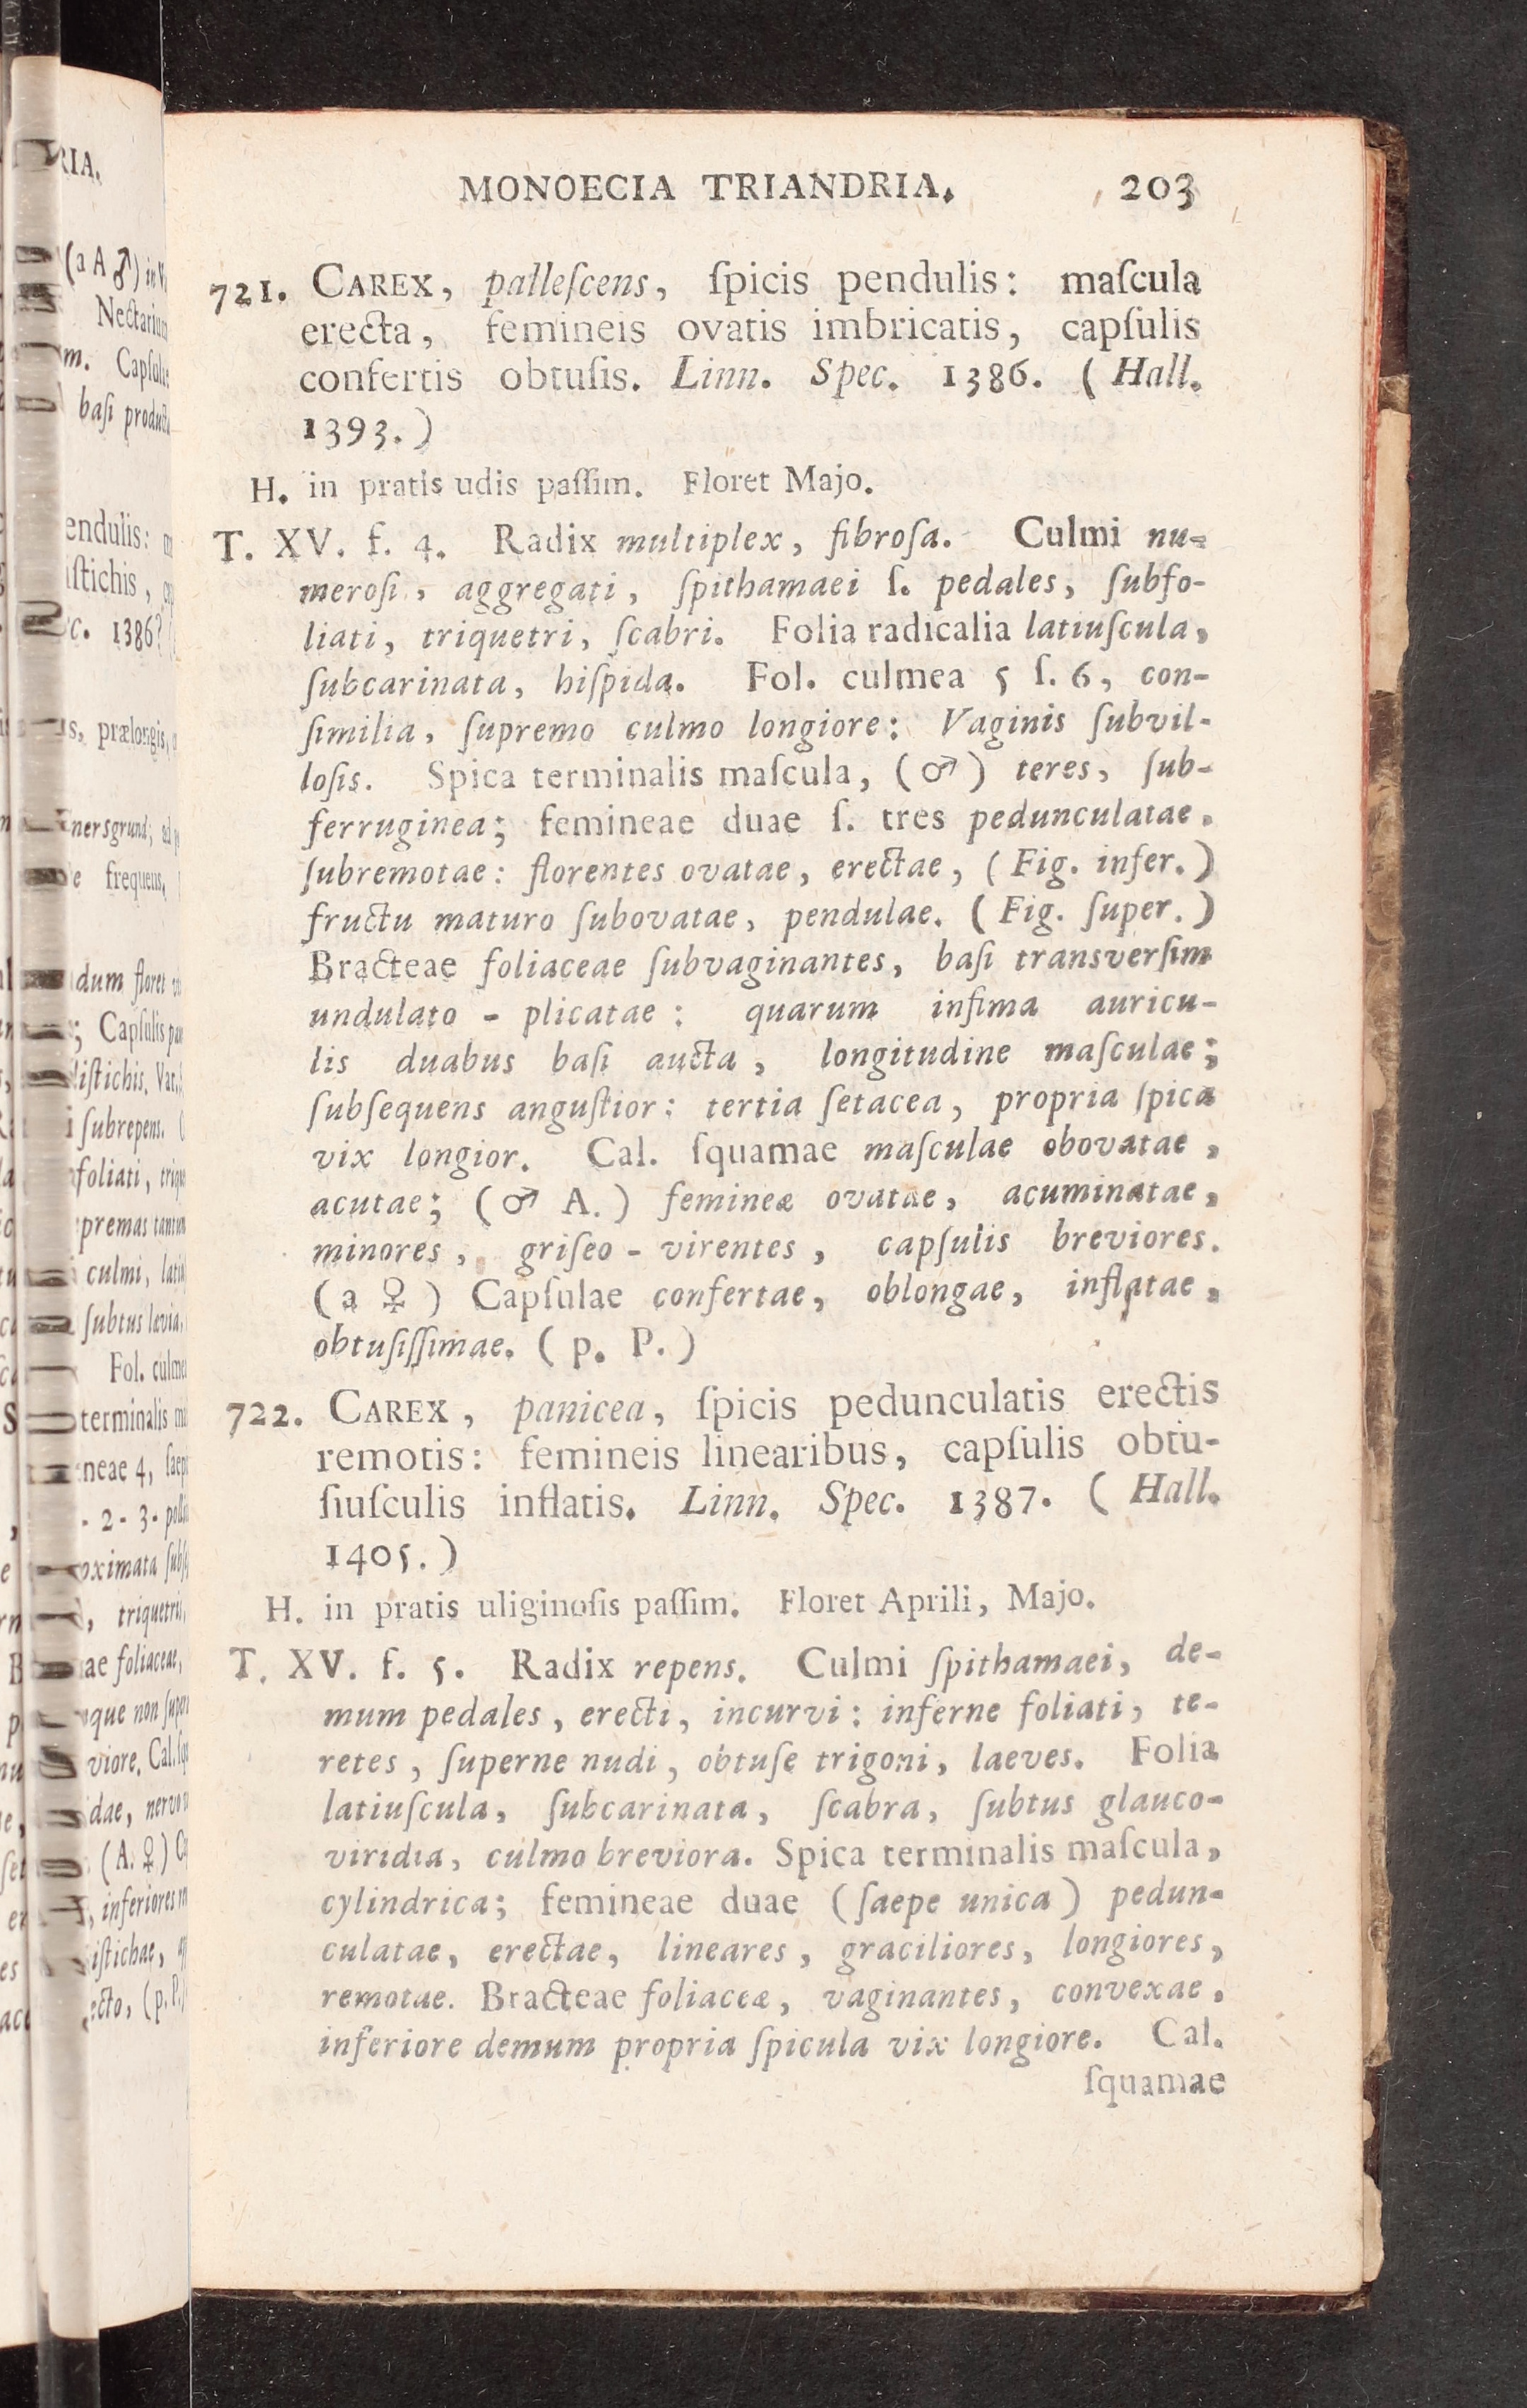 MONOECIA TRIANDRIA. 203
721. CAREX, palleſcens, ſpicis pendulis: maſcula
erecta, femineis ovatis imbricatis, capſulis
confertis obtuſis. Linn. Spec. 1386. (Hall.
1393.)
H. in pratis udis paſſim. Floret Majo.
T. XV. f. 4. Radix multiplex, fibroſa. Culmi nu-
meroſi, aggregati, ſpithamaei ſ. pedales, ſubfo-
liati, triquetri, ſcabri. Folia radicalia latiuſcula,
ſubcarinata, hiſpida. Fol. culmea 5 ſ. 6, con-
ſimilia, ſupremo culmo longiore: Vaginis ſubvil-
loſis. Spica terminalis maſcula, (♂) teres, ſub-
ferruginea; femineae duae ſ. tres pedunculatae,
ſubremotae: florentes ovatae, erectae, (Fig. infer.)
fructu maturo ſubovatae, pendulae. (Fig. ſuper.)
Bracteae foliaceae ſubvaginantes, baſi transverſim
undulato - plicatae: quarum infima auricu-
lis duabus baſi aucta, longitudine maſculae;
ſubſequens anguſtior: tertia ſetacea, propria ſpica
vix longior. Cal. ſquamae maſculae obovatae,
acutae; (♂ A.) femineæ ovatae, acuminatae,
minores, griſeo - virentes, capſulis breviores.
(a ♀) Capſulae confertae, oblongae, inflatae,
obtuſiſſimae. (p. P.)
722. CAREX, panicea, ſpicis pedunculatis erectis
remotis: femineis linearibus, capſulis obtu-
ſiuſculis inflatis. Linn. Spec. 1387. (Hall.
1405.)
H. in pratis uliginoſis paſſim. Floret Aprili, Majo.
T. XV. f. 5. Radix repens. Culmi ſpithamaei, de-
mum pedales, erecti, incurvi: inferne foliati, te-
retes, ſuperne nudi, obtuſe trigoni, laeves. Folia
latiuſcula, ſubcarinata, ſcabra, ſubtus glauco-
viridia, culmo breviora. Spica terminalis maſcula,
cylindrica; femineae duae (ſaepe unica) pedun-
culatae, erectae, lineares, graciliores, longiores,
remotae. Bracteae foliaceæ, vaginantes, convexae,
inferiore demum propria ſpicula vix longiore. Cal.
ſquamae